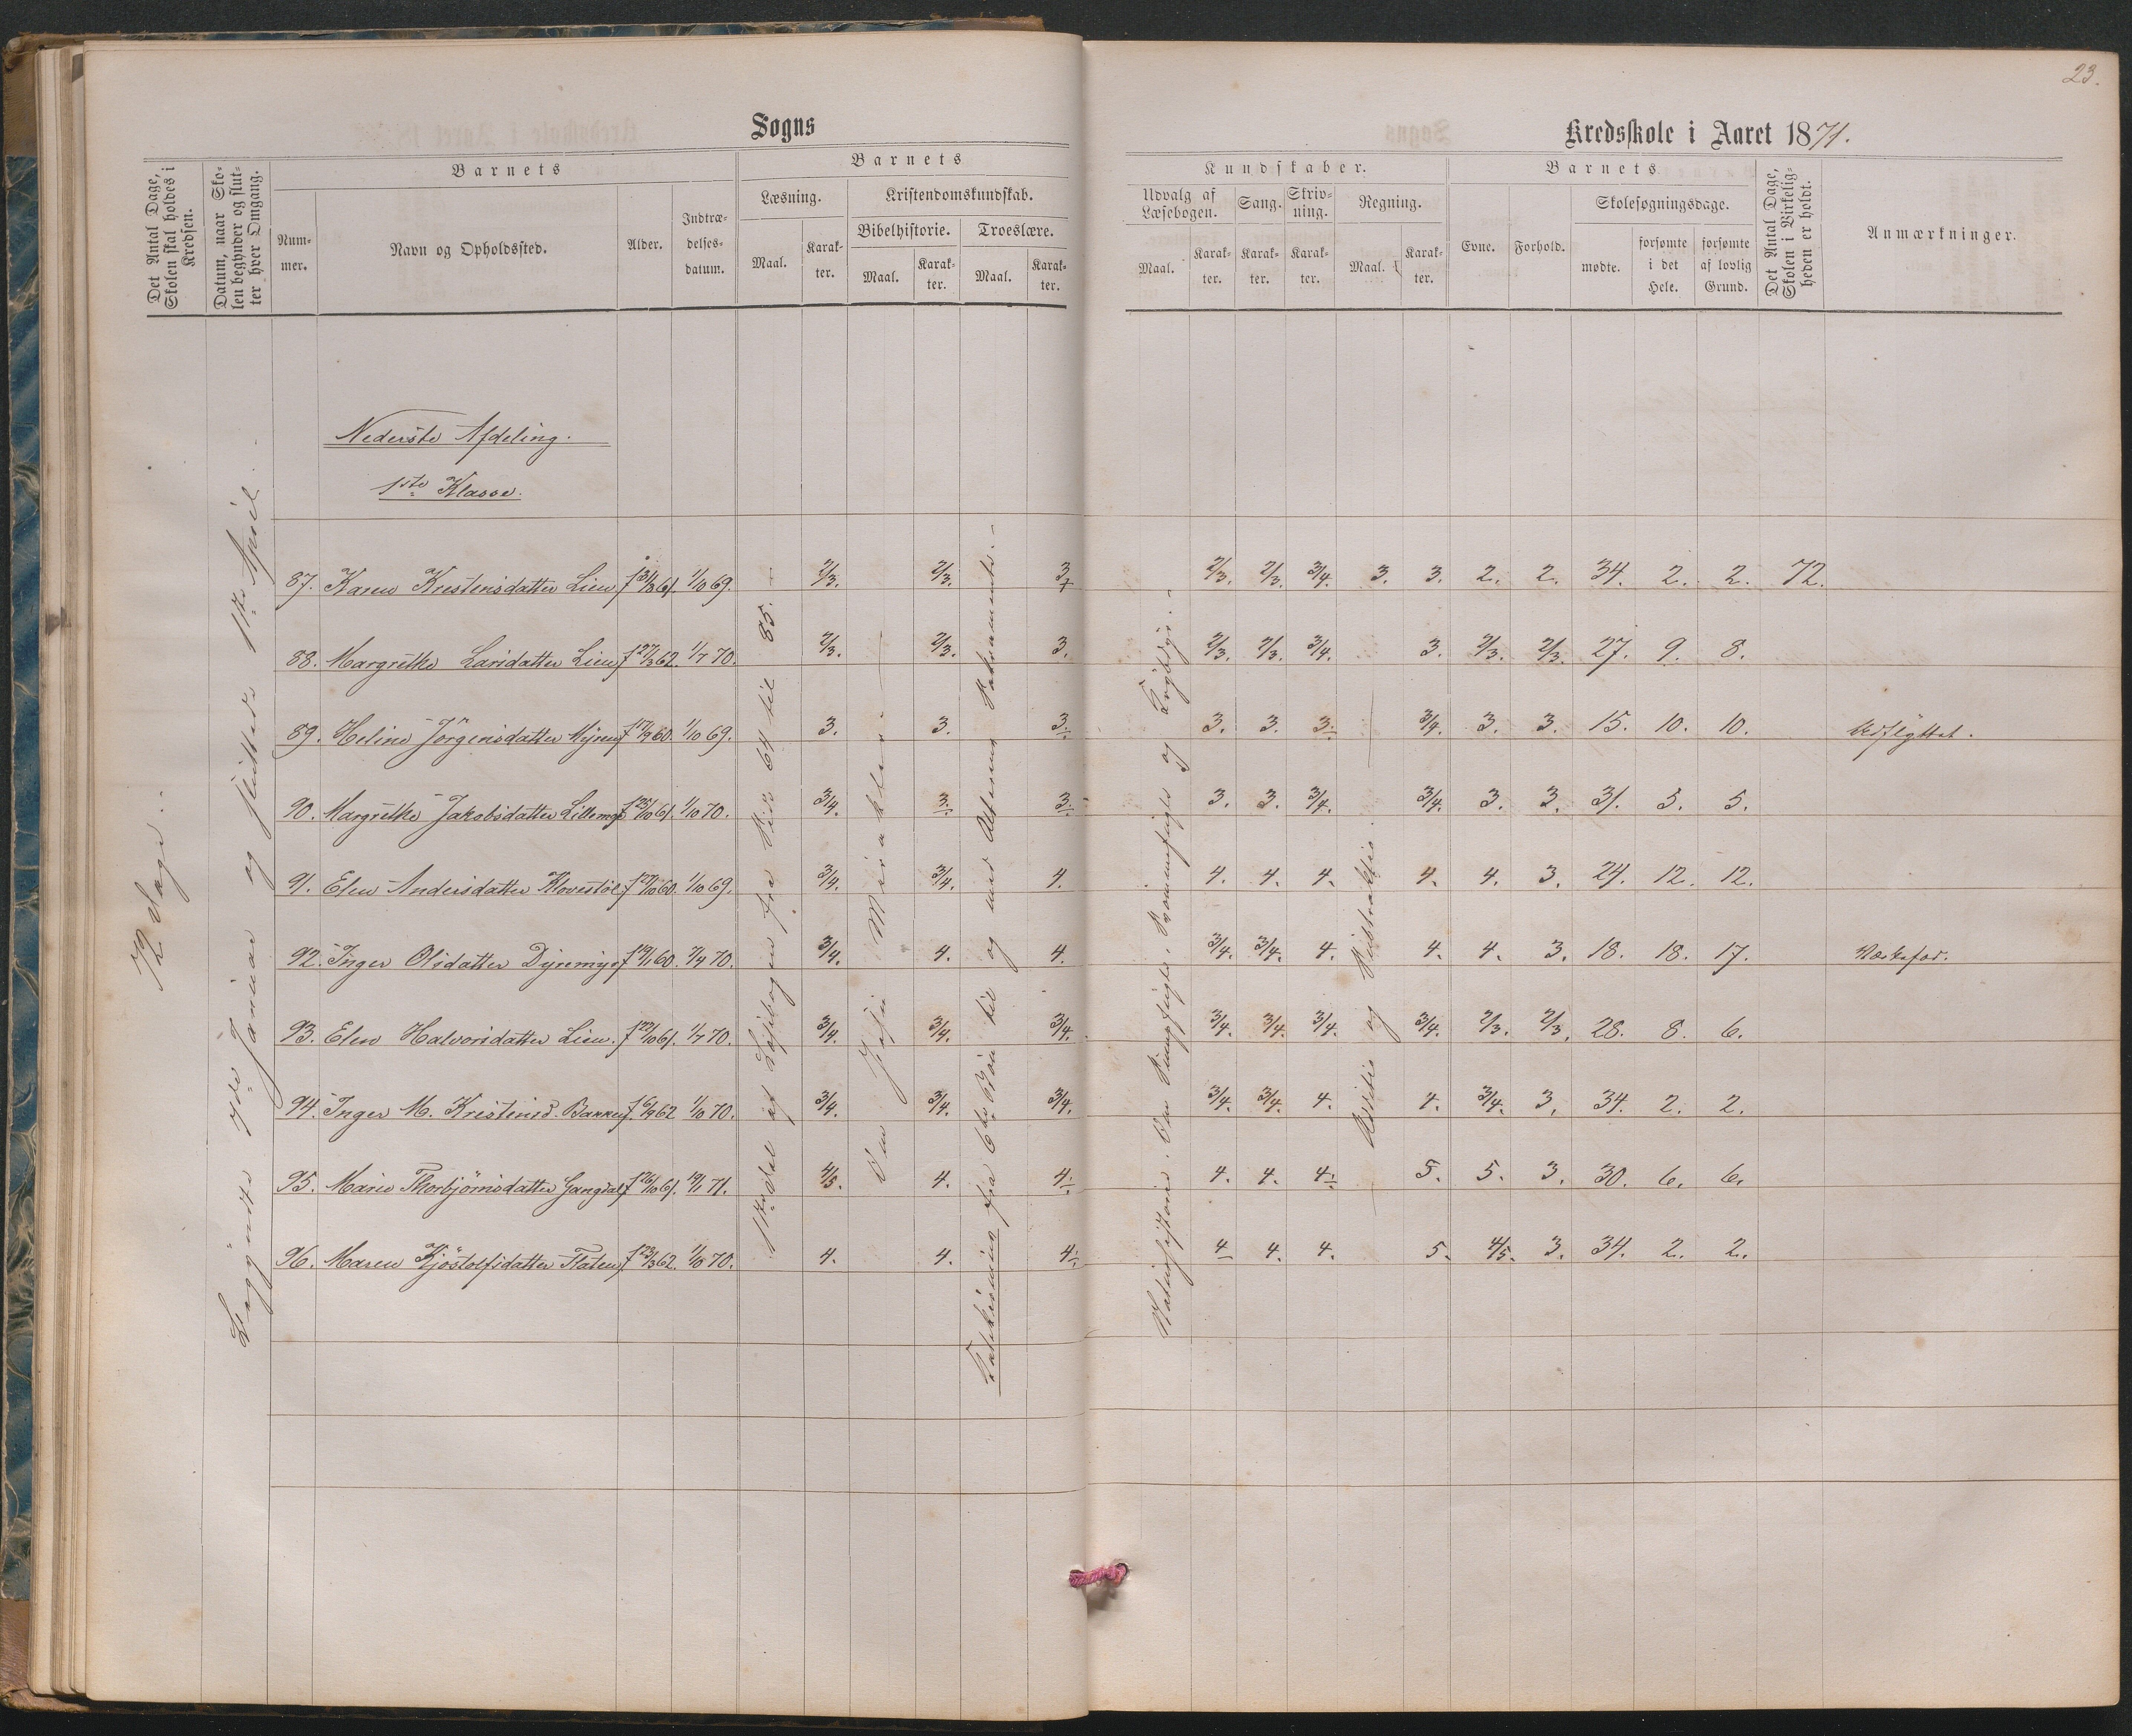 23.
Sogns
Kredsskole i Aaret 1871.
Det Antal Dage, Skolen skal holdes i Kredsen.
Datum, naar Skolen begynder og slutter hver Omgang.
Barnets
Nummer.
Navn og Opholdssted.
Alder.
Indtrædelsesdatum.
Barnets
Læsning.
Maal.
Karakter.
Kristendomskundskab.
Bibelhistorie.
Maal.
Karakter.
Troeslære.
Maal.
Karakter.
Kundskaber.
Udvalg af Læsebogen.
Maal.
Karakter.
Sang.
Karakter.
Skrivning.
Karakter.
Regning.
Maal.
Karakter.
Barnets
Evne.
Forhold.
Skolesøgningsdage.
mødte.
forsømte i det Hele.
forsømte af lovlig Grund.
Det Antal Dage, Skolen i Virkeligheden er holdt.
Anmærkninger.
72 Dage.
Begyndte 9de Januar og sluttede 1ste April.
Nederste Afdeling.
1ste Klasse.
1ste Del af Læsebogen fra Side 64 til 85.
Jesu Mirakler.
fra 6te Bøn til og med Alterens Sakramente.
Naturhistorie. og
og Subtraktio
87. Karen Krestensdatter Lien f 31/3 61. 1/10 69. 2/3. 2/3. 3 2/3. 2/3. 3/4. 3. 3. 2. 2. 34. 2. 2. 72.
88. Margrethe Larsdatter Lien f 27/3 62. 1/7 70. 2/3. 2/3. 3. 2/3. 2/3. 3/4. 3. 2/3. 2/3. 27. 9. 8.
89. Heline Jörgensdatter Myren f 17/9 60. 1/10 69. 3. 3. 3. 3. 3. 3. 3/4. 3. 3. 15. 10. 10. Udflyttet.
90. Margrethe Jakobsdatter f 25/10 61. 1/10 70. 3/4. 3. 3. 3. 3. 3/4. 3/4. 3. 3. 31. 5. 5.
91. Elen Andersdatter Klovestöl f 27/10 60. 1/10 69. 3/4. 3/4. 4. 4. 4. 4. 4. 4. 3. 24. 12. 12.
92. Inger Olsdatter Dyremyr f 19/1 60. 7/4 70. 3/4. 4. 4. 3/4. 3/4. 4. 4. 4. 3. 18. 18. 17.
93. Elen Halvorsdatter Lien. f 22/10 61. 1/7 70. 3/4. 3/4. 3/4. 3/4. 3/4. 3/4. 3/4. 2/3. 2/3. 28. 8. 6.
94. Inger M. Kristensd. Bakken f 6/9 62 1/10 70. 3/4. 3/4. 3/4. 3/4. 3/4. 4. 4. 3/4. 3. 34. 2. 2.
95. Marie Thorbjörnsdatter f 26/10 61. 19/1 71. 4/5. 4. 4. 4. 4. 4. 5. 5. 3. 30. 6. 6.
96. Maren Kjöstolfsdatter Flaten f 23/3 62. 1/10 70. 4. 4. 4. 4 4. 4. 5. 4/5. 3. 34. 2. 2.